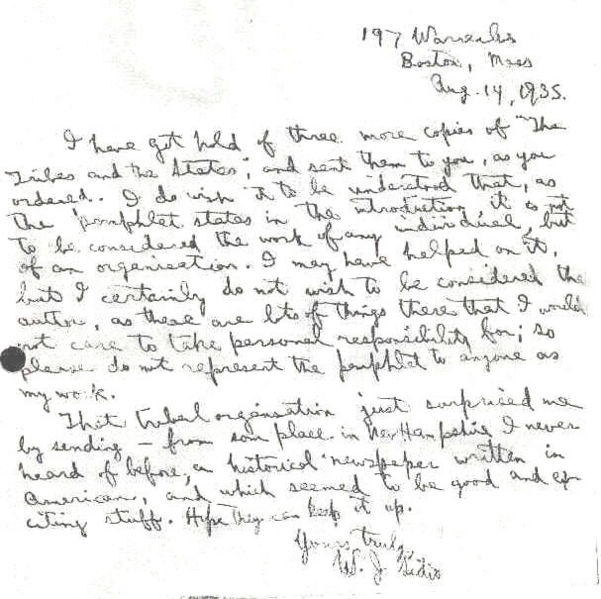 197 Warren Av
Boston, Mass
Aug. 14, 1935.
I have got hold of three more copies of "The
Tribes and the States", and sent them to you, as you
ordered. I do wish it to be understood that, as
the pamphlet states in the introduction it is not
to be considered the work of any individual, but
of an organisation. I may have helped on it,
but I certainly do not wish to be considered the
author, as there are lots of things there that I would
not care to take personal responsibility for; so
please do not represent the pamphlet to anyone as
my work.
That tribal organisation just surprised me
by sending – from some place in New Hampshire I never
heard of before, an historical newspaper written in
American, and which seemed to be good and ex-
citing stuff. Hope they can keep it up.
Yours truly,
W. J. Sidis